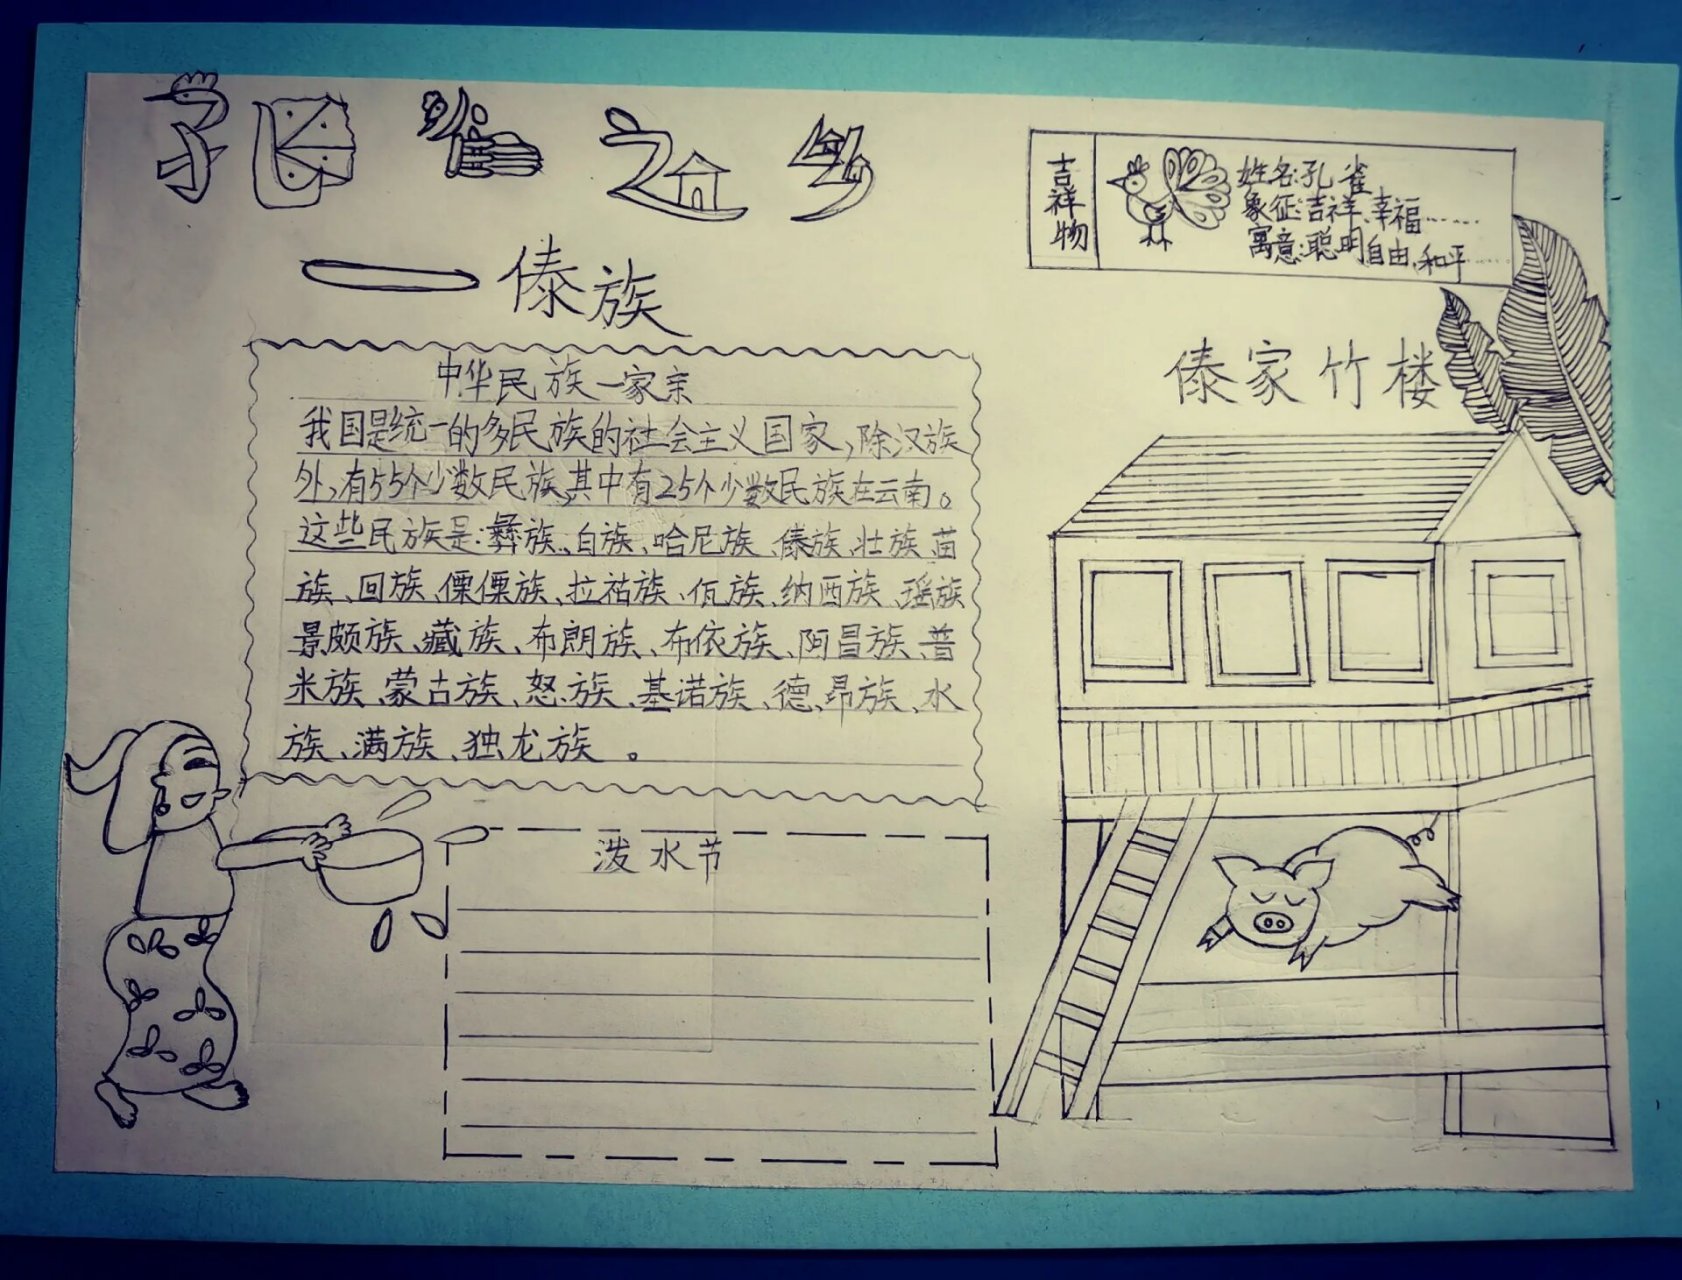 孔雀之乡
——傣族
吉祥物
姓名:孔雀
象征:吉祥、幸福……
寓意:聪明自由、和平……
中华民族一家亲
我国是统一的多民族的社会主义国家,除汉族
外,有55个少数民族,其中有25个少数民族在云南。
这些民族是:彝族、白族、哈尼族、傣族、壮族、苗
族、回族、傈僳族、拉祜族、佤族、纳西族、瑶族
景颇族、藏族、布朗族、布依族、阿昌族、普
米族、蒙古族、怒族、基诺族、德昂族、水
族、满族、独龙族。
傣家竹楼
泼水节